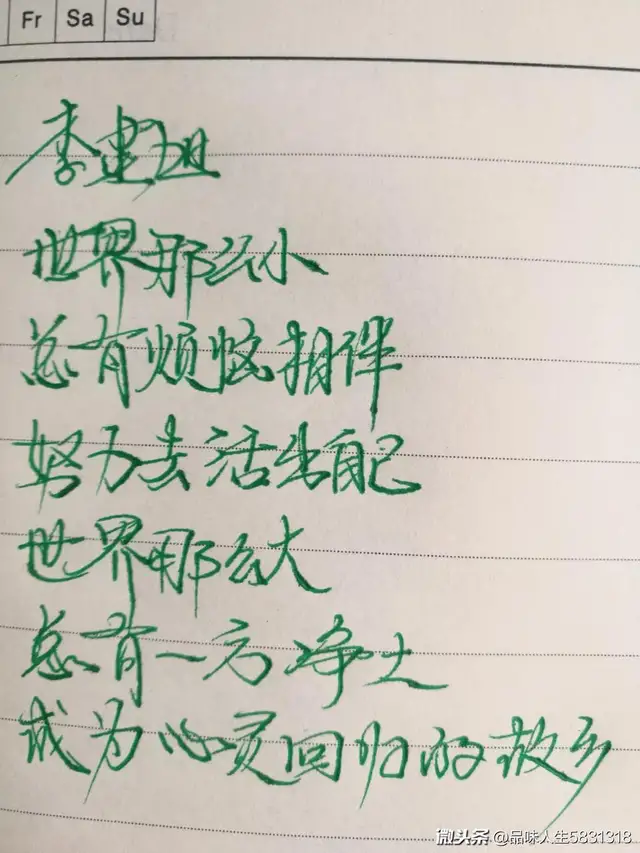 Fr Sa Su
李建
世界那么小
总有烦恼相伴
努力去活出自己
世界那么大
总有一方净土
成为心灵回归的故乡
微头条 @品味人生5831318